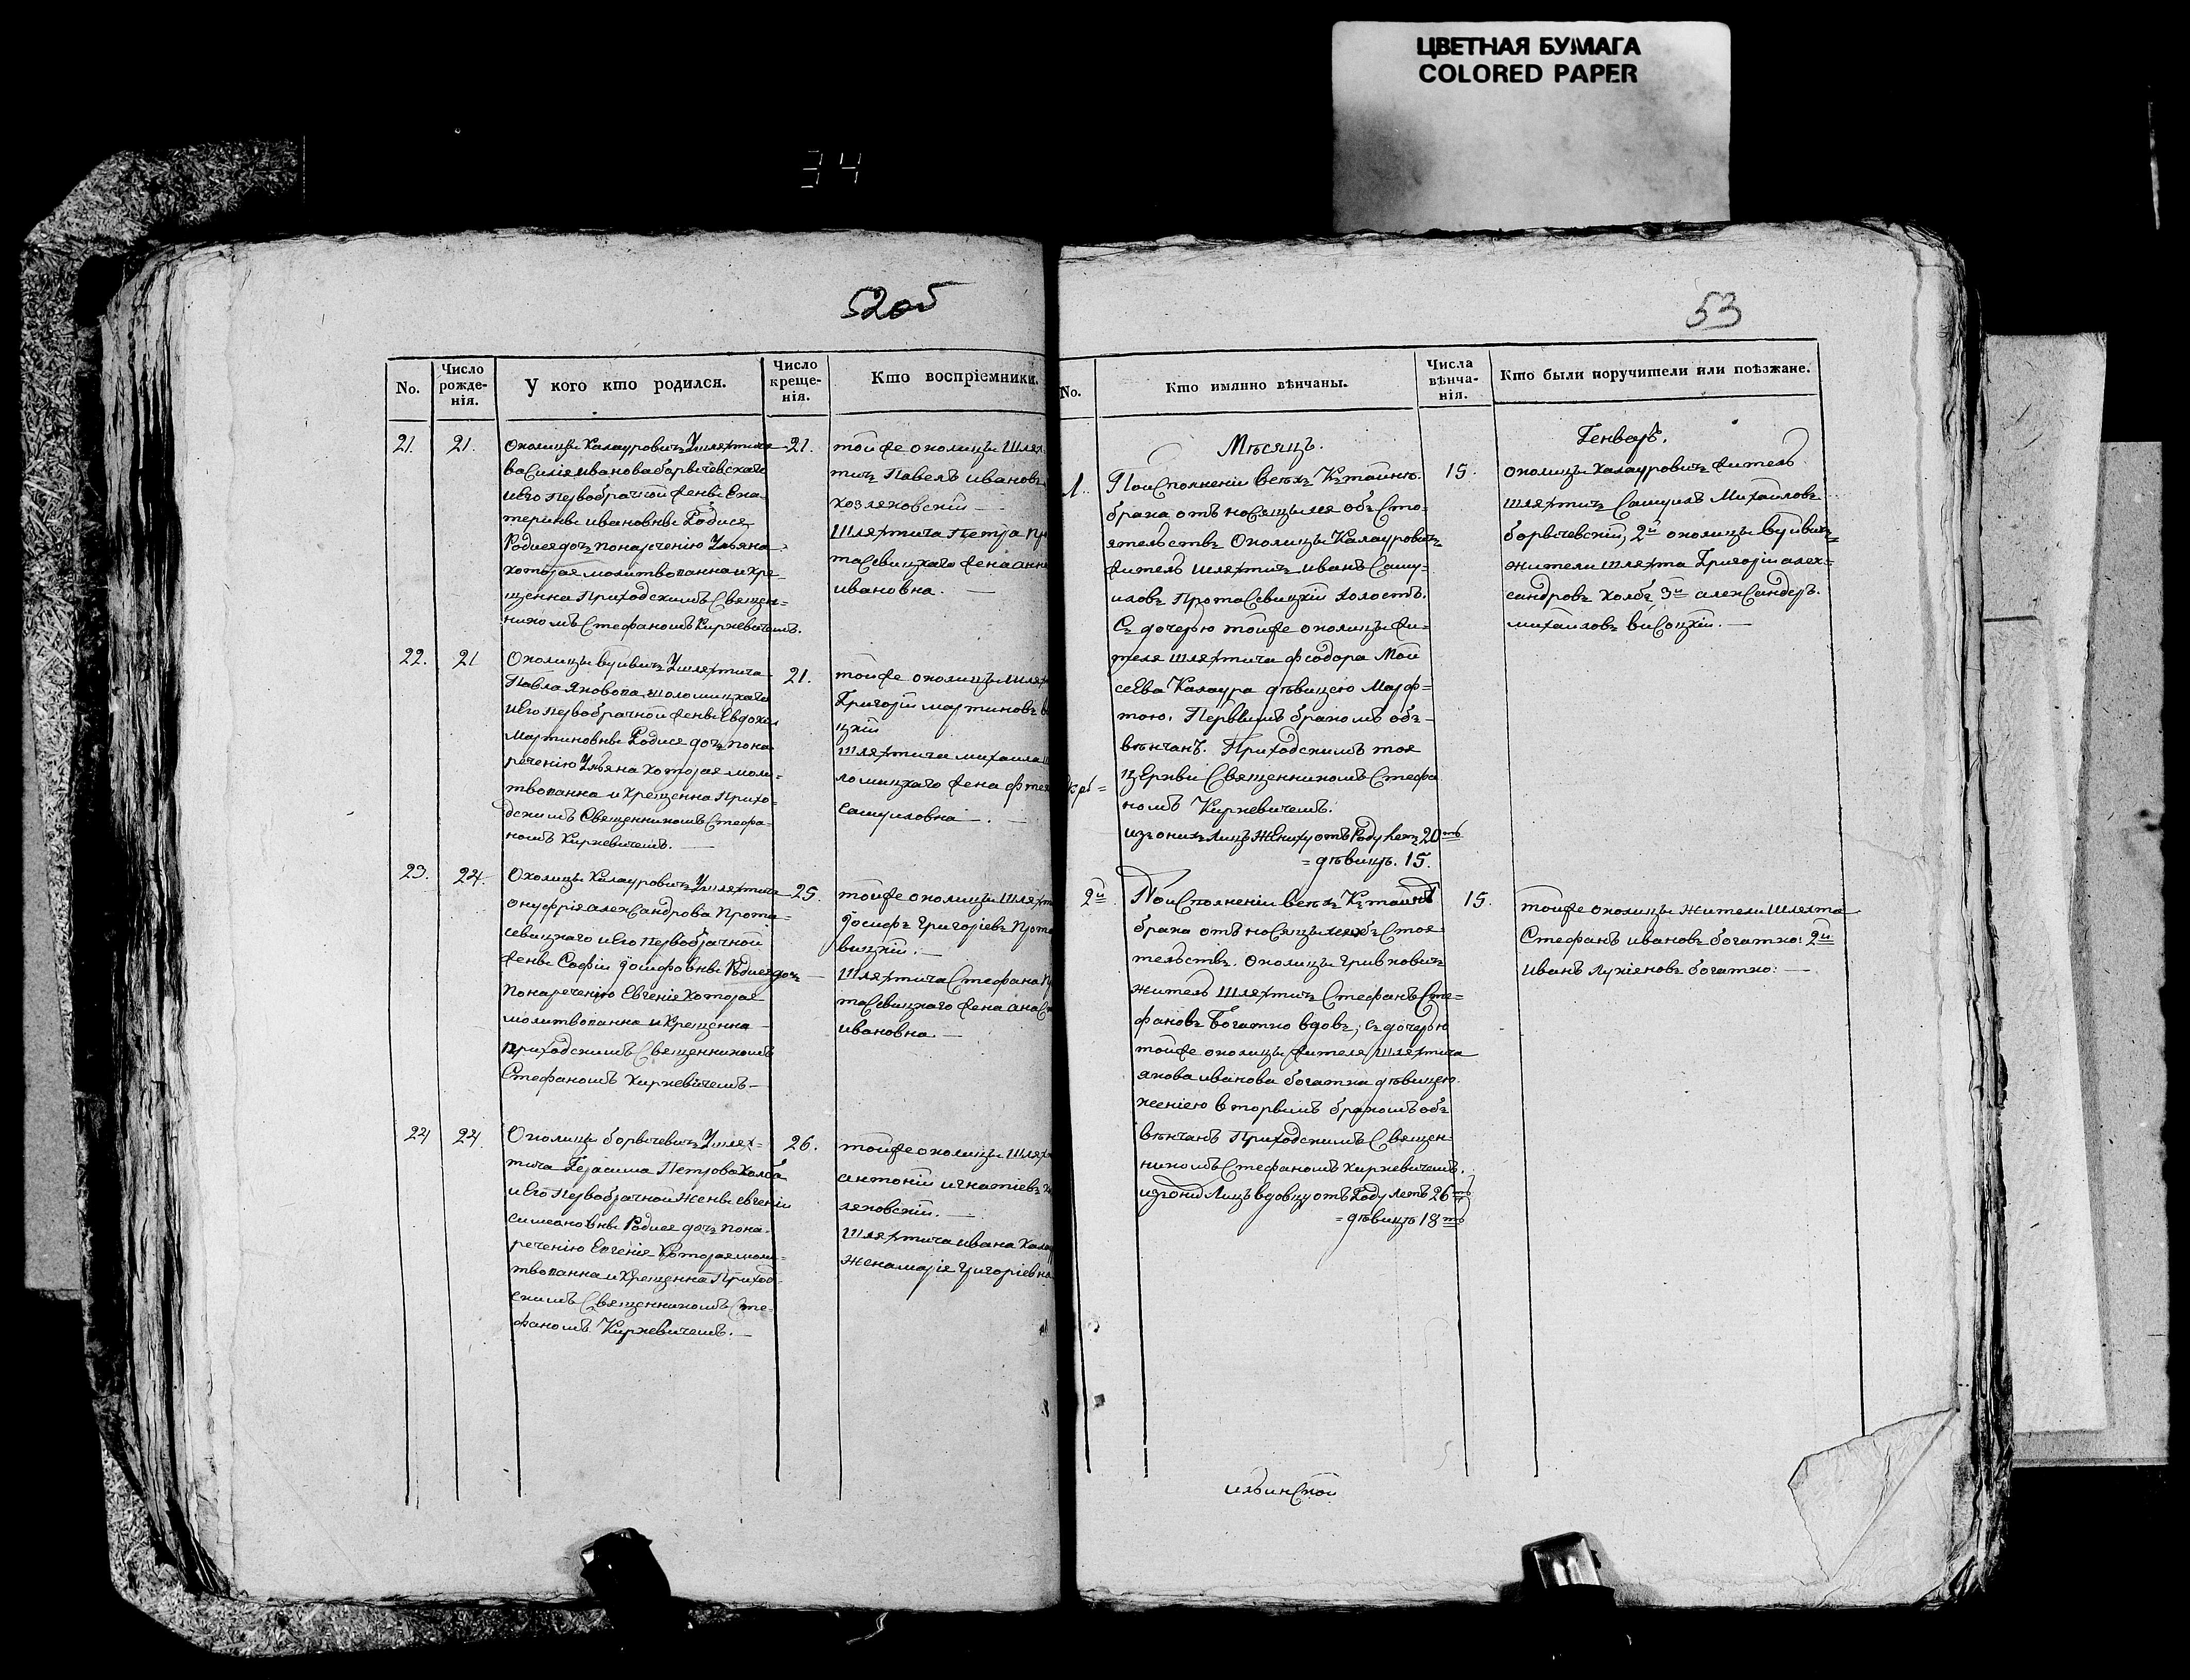 ЦВЕТНАЯ БУМАГА
COLORED PAPER
34
52об
No.
Число рожденія.
У кого кто родился.
Число крещенія.
Кто воспріемники.
21.
21.
околицы Калауровичъ У шляхтича
василія иванова борвичевскаго
и Его первобрачной жены Ека-
терины ивановны Родися
Родися дочъ по наречению Ульяна
которая молитвованна и кре-
щенна Приходскимъ Священ-
никомъ Стефаномъ Киркевичемъ.
21.
тойже околицы Шлях
тичъ Павелъ ивановъ
козляковский
Шляхтича Петра Про
тасевицкаго жена анна
ивановна.
22.
21
Околицы вуйвичъ У шляхтича
Павла Яковова
и Его первобрачной жены Евдокіи
Мартиновны Родися дочъ по на
речению Ульяна которая моли-
твованна и крещенна Прихо-
дскимъ Священникомъ Стефа-
номъ Киркевичемъ.
21.
тойже околицы шлях
Григорій мартиновъ
цкій
шляхтича михаила
ломицкаго жена
самуиловна.
23.
24.
Околицы Калауровичъ У шляхтича
онуфрія александрова Прота-
севицкаго и Его первобрачной
жены Софіи іосифовны Родися дочъ
По наречению Евгенія которая
молитвованна и крещенна
приходскимъ Священникомъ
Стефаномъ Киркевичемъ
25.
тойже околицы шляхт
іосифъ григоріевъ Прота
вицкій.
шляхтича Стефана Пр
тасевицкаго жена анаС
ивановна
24
24
Околицы борвичевичъ У шлях-
тича Герасима Петрова Холба
и Его Первобрачной Жены евгеніи
симеоновны Родися дочъ по на-
речению Евгенія которая моли-
твованна и крещенна Приход
скимъ Священникомъ Сте-
фаномъ Киркевичемъ.
26.
тойже околицы шлях
антоній игнатіевъ
ляковскій.
шляхтича ивана Калау
жена марія григоріевна
53
No.
Кто имянно вѣнчаны.
Числа вѣнчанія.
Кто были поручители или поѣзжане.
Мѣсяцъ.
Генварь.
1.
По исполненіи всехъ Къ тайнѣ
брака отъ носящыхся обсто-
ятельствъ Околицы Калауровичъ
житель шляхтичъ иванъ Саму-
иловъ Протасевицкій холостъ.
Съ дочерью тойже околицы жи-
теля шляхтича феодора Мои
сеева Калаура дѣвицею Марф-
тою. Первымъ бракомъ об-
вѣнчанъ. Приходскимъ тоя
церкви Священникомъ Стефа
номъ Киркевичемъ.
из оныхъ лицъ жениху отъ роду летъ 20ть
= дѣвицѣ. 15.
15.
околицы Калауровичъ житель
шляхтичъ Самуилъ Михаиловъ
борвичевскій, 2й околицы вуйвичъ
жители шляхта Григорій алек-
сандровъ холбъ 3й александеръ.
михаиловъ висоцкій.
2й
По исполненіи всехъ Къ тайнѣ
брака отъ носящыхся обстоя-
тельствъ. Околицы Гривковичъ
житель Шляхтичъ Стефанъ Сте-
фановъ Богатко вдовъ, съ дочерью
тойже околицы жителя шляхтича
якова иванова богатка дѣвицею
ксеніею вторымъ бракомъ об-
вѣнчанъ Приходскимъ Священ-
никомъ Стефаномъ Киркевичемъ.
из оныхъ Лицъ вдовцу отъ Роду летъ 26ть
= дѣвицѣ 18ть
15.
тойже околицы жители шляхта
Стефанъ ивановъ богатко: 2й
иванъ лукіеновъ богатко:
ильинской